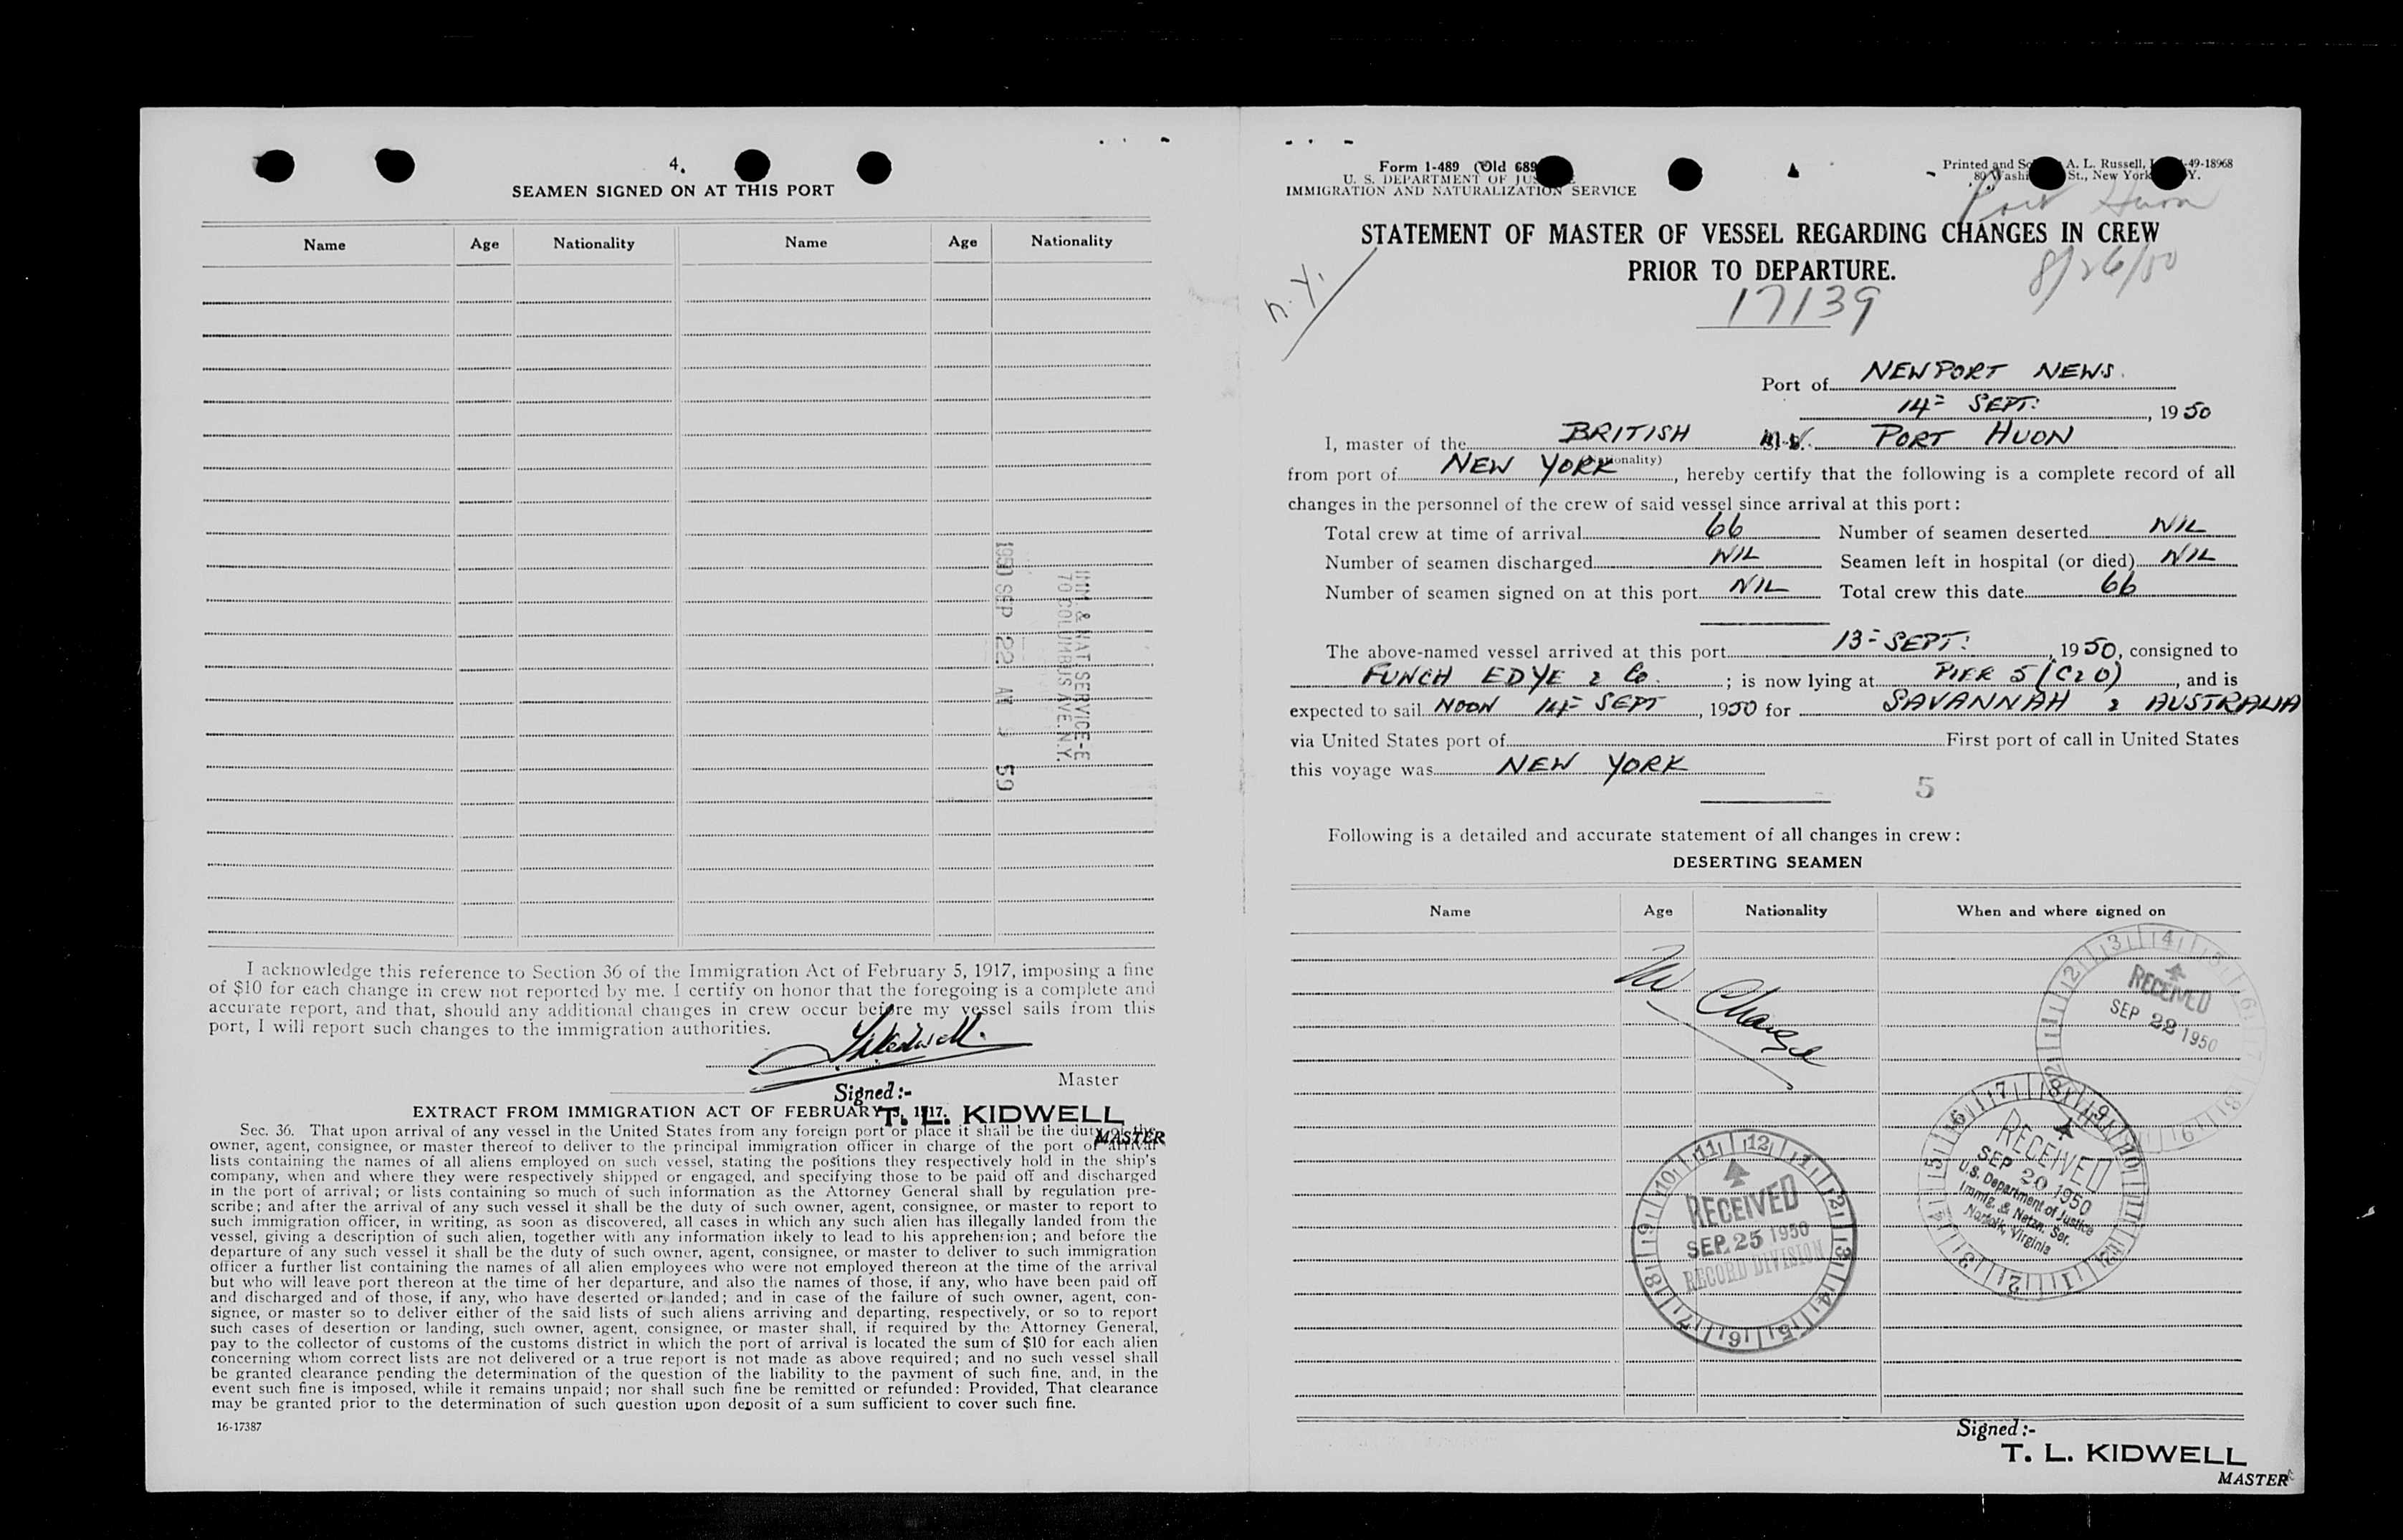 4.
SEAMEN SIGNED ON AT THIS PORT
Name Age Nationality Name Age Nationality
IMM & NAT SERVICE-E
70 COLUMBUS AVE. N.Y.
1950 SEP 22 AM 59
I acknowledge this reference to Section 36 of the Immigration Act of February 5, 1917, imposing a fine
of $10 for each change in crew not reported by me. I certify on honor that the foregoing is a complete and
accurate report, and that, should any additional changes in crew occur before my vessel sails from this
port, I will report such changes to the immigration authorities.
Master
Signed:-
T. L. KIDWELL
MASTER
EXTRACT FROM IMMIGRATION ACT OF FEBRUARY 5, 1917.
Sec. 36. That upon arrival of any vessel in the United States from any foreign port or place it shall be the duty of the
owner, agent, consignee, or master thereof to deliver to the principal immigration officer in charge of the port of arrival
lists containing the names of all aliens employed on such vessel, stating the positions they respectively hold in the ship's
company, when and where they were respectively shipped or engaged, and specifying those to be paid off and discharged
in the port of arrival; or lists containing so much of such information as the Attorney General shall by regulation pre-
scribe; and after the arrival of any such vessel it shall be the duty of such owner, agent, consignee, or master to report to
such immigration officer, in writing, as soon as discovered, all cases in which any such alien has illegally landed from the
vessel, giving a description of such alien, together with any information likely to lead to his apprehension; and before the
departure of any such vessel it shall be the duty of such owner, agent, consignee, or master to deliver to such immigration
officer a further list containing the names of all alien employees who were not employed thereon at the time of the arrival
but who will leave port thereon at the time of her departure, and also the names of those, if any, who have been paid off
and discharged and of those, if any, who have deserted or landed; and in case of the failure of such owner, agent, con-
signee, or master so to deliver either of the said lists of such aliens arriving and departing, respectively, or so to report
such cases of desertion or landing, such owner, agent, consignee, or master shall, if required by the Attorney General,
pay to the collector of customs of the customs district in which the port of arrival is located the sum of $10 for each alien
concerning whom correct lists are not delivered or a true report is not made as above required; and no such vessel shall
be granted clearance pending the determination of the question of the liability to the payment of such fine, and, in the
event such fine is imposed, while it remains unpaid; nor shall such fine be remitted or refunded: Provided, That clearance
may be granted prior to the determination of such question upon deposit of a sum sufficient to cover such fine.
16-17387
Form 1-489 (Old 689
U. S. DEPARTMENT OF JUS
IMMIGRATION AND NATURALIZATION SERVICE
Printed and So A. L. Russell, -49-18968
80 Washi St., New York Y.
Port Huon
STATEMENT OF MASTER OF VESSEL REGARDING CHANGES IN CREW
PRIOR TO DEPARTURE.
8/26/50
n.y.
17139
Port of NEWPORT NEWS.
14= SEPT: , 1950
I, master of the BRITISH M.V. PORT HUON
from port of NEW YORK (Nationality), hereby certify that the following is a complete record of all
changes in the personnel of the crew of said vessel since arrival at this port:
Total crew at time of arrival 66 Number of seamen deserted NIL
Number of seamen discharged NIL Seamen left in hospital (or died) NIL
Number of seamen signed on at this port NIL Total crew this date 66
The above-named vessel arrived at this port 13= SEPT: , 1950, consigned to
FUNCH EDYE & Co. ; is now lying at PIER 5 (C & O) , and is
expected to sail NOON 14= SEPT , 1950 for SAVANNAH & AUSTRALIA
via United States port of First port of call in United States
this voyage was NEW YORK
5
Following is a detailed and accurate statement of all changes in crew:
DESERTING SEAMEN
Name Age Nationality When and where signed on
No Change
RECEIVED
SEP 22 1950
RECEIVED
SEP 20 1950
U.S. Department of Justice
Immig. & Natzn. Ser.
Norfolk, Virginia
RECEIVED
SEP 25 1950
RECORD DIVISION
Signed:-
T. L. KIDWELL
MASTER